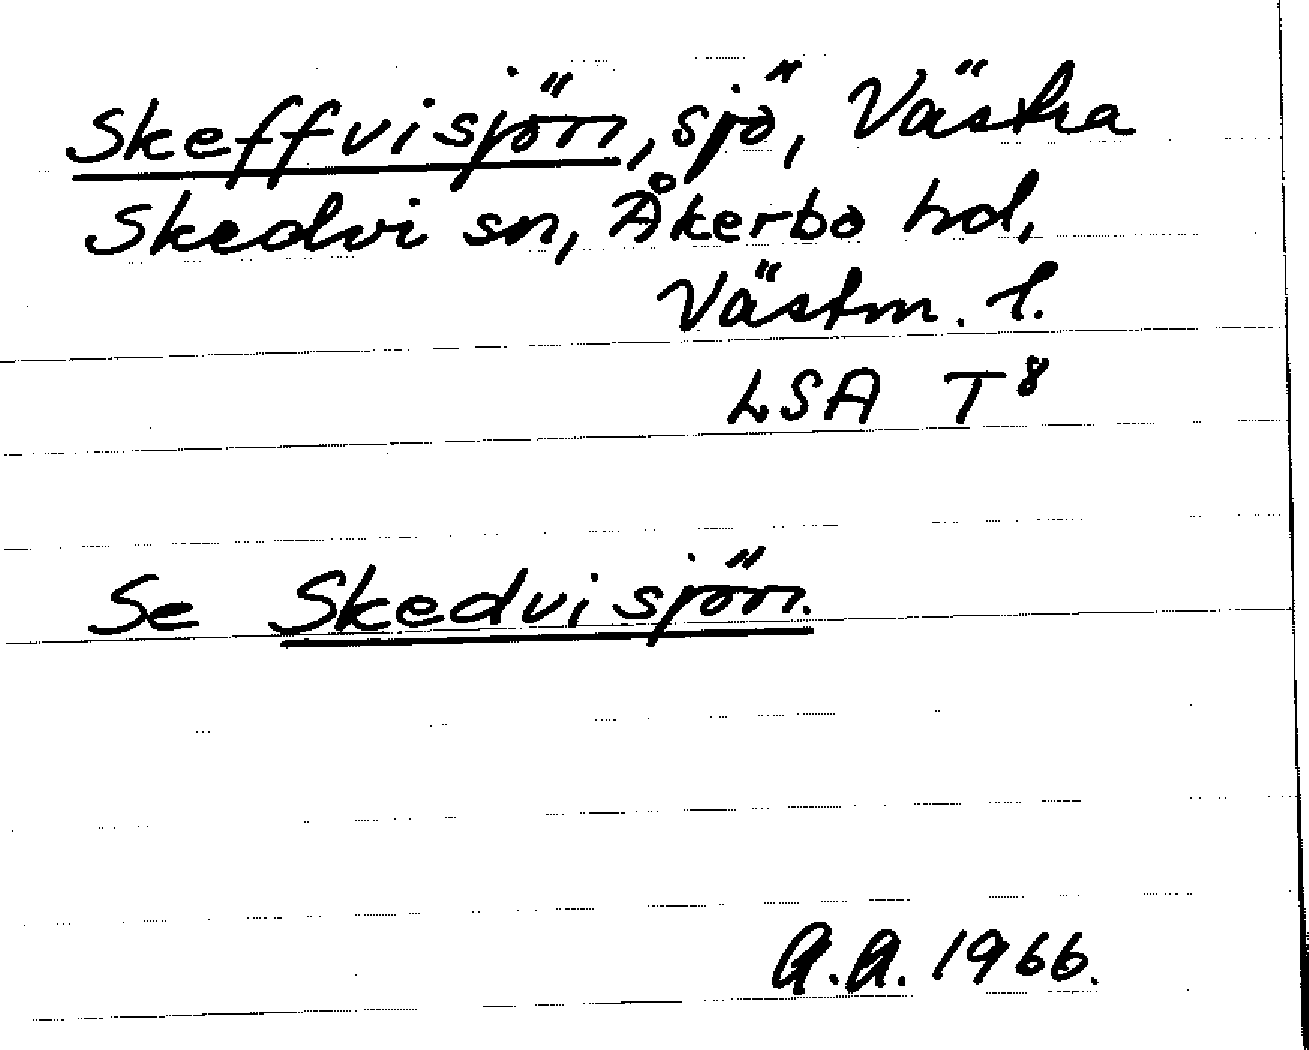 Skeffvisjön, sjö, Västra
Skedvi sn, Åkerbo hd,
Västm. l.
LSA T⁸
Se Skedvisjön.
A.A. 1966.